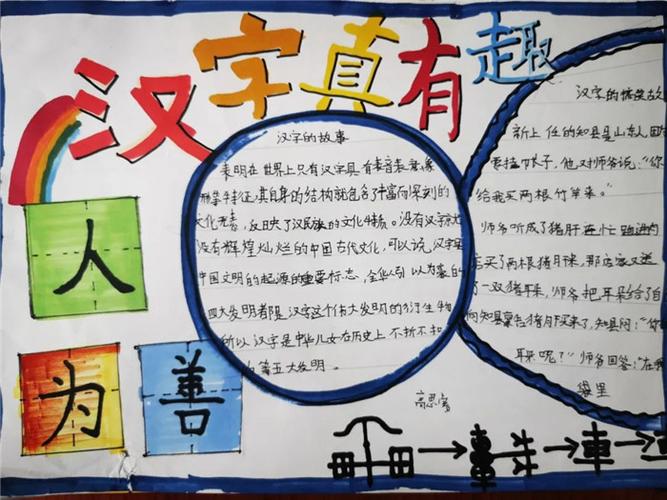 汉字真有趣
人
为善
汉字的故事
表明在世界上只有汉字具有表音表意像
形等特征,其自身的结构就包含了丰富而深刻的
文化元素,反映了汉民族的文化特质。没有汉字就
没有辉煌灿烂的中国古代文化,可以说,汉字是
中国文明的起源的重要标志,
四大发明都是汉字这个伟大发明的衍生物
所以汉字是中华儿女在历史上不折不扣
第五大发明。
高思
汉字的搞笑故
新上任的知县是山东人,因
要挂帐子,他对师爷说:“你
给我买两根竹竿来。”
师爷听成了猪肝连忙跑进肉
店买了两根猪肝来,那店家又送
了一双猪耳朵,师爷把耳朵给了自
向知县禀告猪肝买来了,知县问:“你
耳朵呢?”师爷回答:“在我
袋里
車